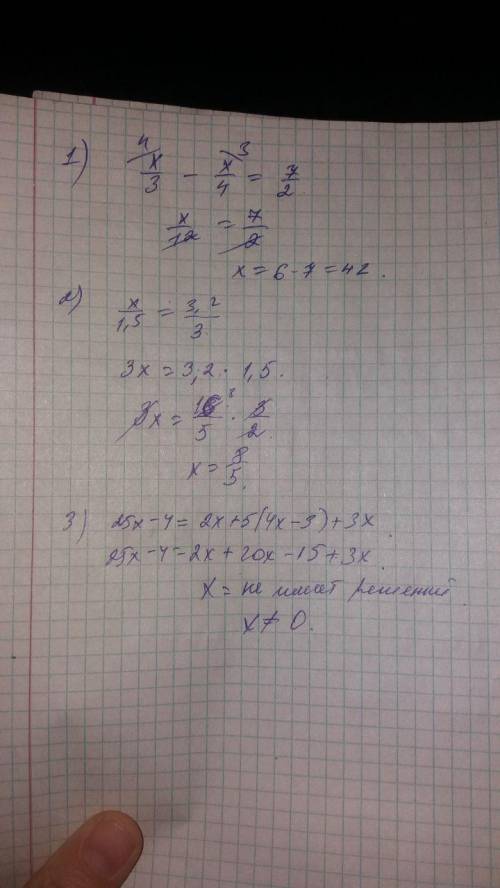 1) 4 x/3 - x/4 3 = 7/2
x/12 = 7/2
x = 6 · 7 = 42.
2) x/1,5 = 3,2/3
3x = 3,2 · 1,5.
3x = 16/5 8 · 3/2
x = 8/5.
3) 25x - 4 = 2x + 5(4x - 3) + 3x
25x - 4 = 2x + 20x - 15 + 3x
x = не имеет решений
x ≠ 0.